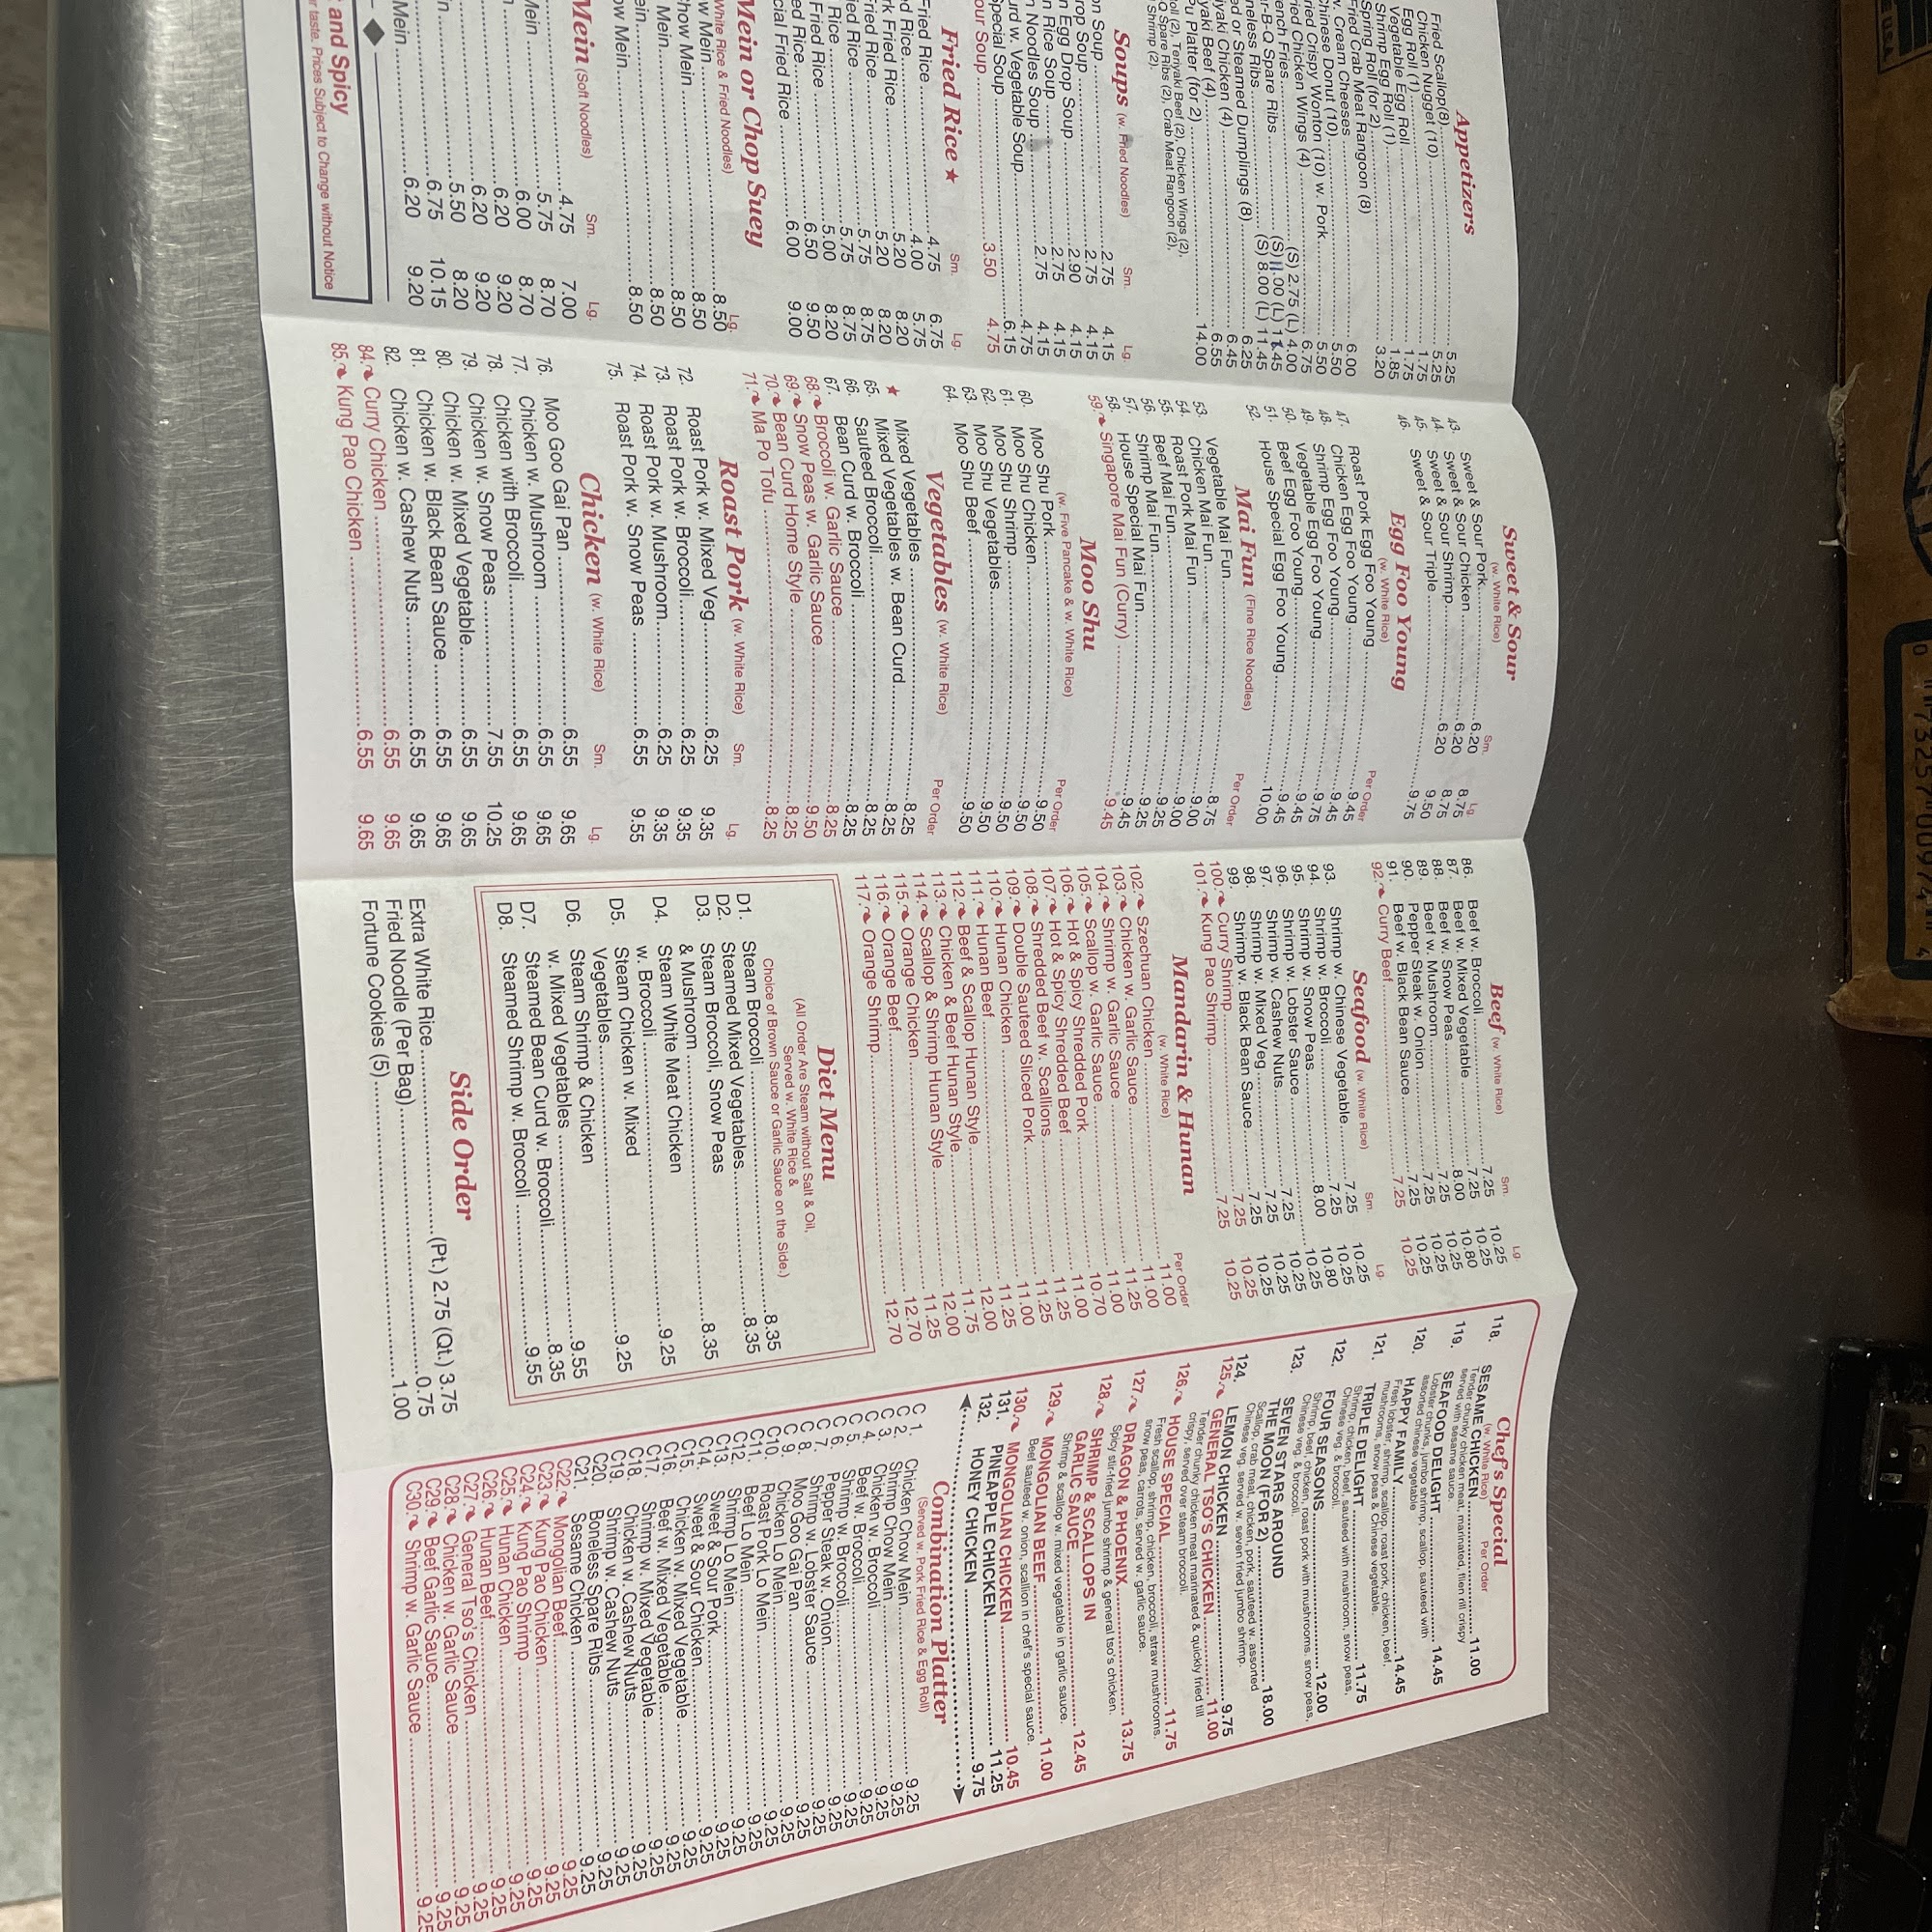 Appetizers
Fried Scallop(8) 5.25
Chicken Nugget (10) 5.25
Egg Roll (1) 1.75
Vegetable Egg Roll 1.75
Shrimp Egg Roll (1) 1.85
Spring Roll (for 2) 3.20
Fried Crab Meat Rangoon (8)
w. Cream Cheeses 6.00
Chinese Donut (10) 5.50
Fried Crispy Wonton (10) w. Pork 5.50
Fried Chicken Wings (4) 6.75
French Fries (S) 2.75 (L) 4.00
Bar-B-Q Spare Ribs (S) 11.00 (L) 11.45
Boneless Ribs (S) 8.00 (L) 11.45
ed or Steamed Dumplings (8) 6.25
iyaki Chicken (4) 6.45
yaki Beef (4) 6.55
Pu Platter (for 2) 14.00
oll (2), Teriyaki Beef (2), Chicken Wings (2),
Q Spare Ribs (2), Crab Meat Rangoon (2),
Shrimp (2).
Soups (w. Fried Noodles) Sm. Lg.
on Soup 2.75 4.15
rop Soup 2.75 4.15
n Egg Drop Soup 2.90 4.15
n Rice Soup 2.75 4.15
n Noodles Soup 2.75 4.15
urd w. Vegetable Soup 4.75
pecial Soup 6.15
our Soup 3.50 4.75
Fried Rice ★ Sm. Lg.
Fried Rice 4.75 6.75
d Rice 4.00 5.75
rk Fried Rice 5.20 8.20
ried Rice 5.20 8.20
ied Rice 5.75 8.75
Rice 5.75 8.75
Fried Rice 5.00 8.20
ed Rice 6.50 9.50
cial Fried Rice 6.00 9.00
Mein or Chop Suey
White Rice & Fried Noodles) Lg.
w Mein 8.50
how Mein 8.50
Mein 8.50
ein 8.50
ow Mein 8.50
Mein (Soft Noodles) Sm. Lg.
4.75 7.00
5.75 8.70
Mein 6.00 8.70
6.20 9.20
6.20 9.20
n 5.50 8.20
6.75 10.15
Mein 6.20 9.20
and Spicy
r taste. Prices Subject to Change without Notice
Sweet & Sour
(w. White Rice) Sm. Lg.
43. Sweet & Sour Pork 6.20 8.75
44. Sweet & Sour Chicken 6.20 8.75
45. Sweet & Sour Shrimp 6.20 9.50
46. Sweet & Sour Triple 9.75
Egg Foo Young
(w. White Rice) Per Order
47. Roast Pork Egg Foo Young 9.45
48. Chicken Egg Foo Young 9.45
49. Shrimp Egg Foo Young 9.75
50. Vegetable Egg Foo Young 9.45
51. Beef Egg Foo Young 9.45
52. House Special Egg Foo Young 10.00
Mai Fun (Fine Rice Noodles) Per Order
53. Vegetable Mai Fun 8.75
54. Chicken Mai Fun 9.00
55. Roast Pork Mai Fun 9.00
56. Beef Mai Fun 9.25
57. Shrimp Mai Fun 9.25
58. House Special Mai Fun 9.45
59. Singapore Mai Fun (Curry) 9.45
Moo Shu
(w. Five Pancake & w. White Rice) Per Order
60. Moo Shu Pork 9.50
61. Moo Shu Chicken 9.50
62. Moo Shu Shrimp 9.50
63. Moo Shu Vegetables 9.50
64. Moo Shu Beef 9.50
Vegetables (w. White Rice) Per Order
★ Mixed Vegetables 8.25
65. Mixed Vegetables w. Bean Curd 8.25
66. Sauteed Broccoli 8.25
67. Bean Curd w. Broccoli 8.25
68. Broccoli w. Garlic Sauce 8.25
69. Snow Peas w. Garlic Sauce 9.50
70. Bean Curd Home Style 8.25
71. Ma Po Tofu 8.25
Roast Pork (w. White Rice) Sm. Lg.
72. Roast Pork w. Mixed Veg 6.25 9.35
73. Roast Pork w. Broccoli 6.25 9.35
74. Roast Pork w. Mushroom 6.25 9.35
75. Roast Pork w. Snow Peas 6.55 9.55
Chicken (w. White Rice) Sm. Lg.
76. Moo Goo Gai Pan 6.55 9.65
77. Chicken w. Mushroom 6.55 9.65
78. Chicken with Broccoli 6.55 9.65
79. Chicken w. Snow Peas 7.55 10.25
80. Chicken w. Mixed Vegetable 6.55 9.65
81. Chicken w. Black Bean Sauce 6.55 9.65
82. Chicken w. Cashew Nuts 6.55 9.65
84. Curry Chicken 6.55 9.65
85. Kung Pao Chicken 6.55 9.65
Beef (w. White Rice) Sm. Lg.
86. Beef w. Broccoli 7.25 10.25
87. Beef w. Mixed Vegetable 7.25 10.25
88. Beef w. Snow Peas 8.00 10.80
89. Beef w. Mushroom 7.25 10.25
90. Pepper Steak w. Onion 7.25 10.25
91. Beef w. Black Bean Sauce 7.25 10.25
92. Curry Beef 7.25 10.25
Seafood (w. White Rice) Sm. Lg.
93. Shrimp w. Chinese Vegetable 7.25 10.25
94. Shrimp w. Broccoli 7.25 10.25
95. Shrimp w. Snow Peas 8.00 10.80
96. Shrimp w. Lobster Sauce 10.25
97. Shrimp w. Cashew Nuts 7.25 10.25
98. Shrimp w. Mixed Veg 7.25 10.25
99. Shrimp w. Black Bean Sauce 7.25 10.25
100. Curry Shrimp 7.25 10.25
101. Kung Pao Shrimp 7.25 10.25
Mandarin & Hunan
(w. White Rice) Per Order
102. Szechuan Chicken 11.00
103. Chicken w. Garlic Sauce 11.00
104. Shrimp w. Garlic Sauce 11.25
105. Scallop w. Garlic Sauce 11.00
106. Hot & Spicy Shredded Pork 10.70
107. Hot & Spicy Shredded Beef 11.00
108. Shredded Beef w. Scallions 11.25
109. Double Sauteed Sliced Pork 11.25
110. Hunan Chicken 11.00
111. Hunan Beef 11.25
112. Beef & Scallop Hunan Style 12.00
113. Chicken & Beef Hunan Style 11.75
114. Scallop & Shrimp Hunan Style 12.00
115. Orange Chicken 11.25
116. Orange Beef 12.70
117. Orange Shrimp 12.70
Diet Menu
(All Order Are Steam without Salt & Oil,
Served w. White Rice &
Choice of Brown Sauce or Garlic Sauce on the Side.)
D1. Steam Broccoli 8.35
D2. Steamed Mixed Vegetables 8.35
D3. Steam Broccoli, Snow Peas
& Mushroom 8.35
D4. Steam White Meat Chicken
w. Broccoli 9.25
D5. Steam Chicken w. Mixed
Vegetables 9.25
D6. Steam Shrimp & Chicken
w. Mixed Vegetables 9.55
D7. Steamed Bean Curd w. Broccoli 8.35
D8. Steamed Shrimp w. Broccoli 9.55
Side Order
Extra White Rice (Pt.) 2.75 (Qt.) 3.75
Fried Noodle (Per Bag) 0.75
Fortune Cookies (5) 1.00
Chef's Special
(w. White Rice) Per Order
118. SESAME CHICKEN 11.00
Tender chunky chicken meat, marinated, then till crispy
served with sesame sauce.
119. SEAFOOD DELIGHT 14.45
Lobster chunks, jumbo shrimp, scallop, sauteed with
assorted chinese vegetable
120. HAPPY FAMILY 14.45
Fresh lobster, shrimp, scallop, roast pork, chicken, beef,
mushrooms, snow peas & Chinese vegetable.
121. TRIPLE DELIGHT 11.75
Shrimp, chicken, beef, sauteed with mushroom, snow peas,
Chinese veg. & broccoli.
122. FOUR SEASONS 12.00
Shrimp, beef, chicken, roast pork with mushrooms, snow peas,
Chinese veg. & broccoli.
123. SEVEN STARS AROUND
THE MOON (FOR 2) 18.00
Scallop, crab meat, chicken, pork, sauteed w. assorted
Chinese veg. served w. seven fried jumbo shrimp.
124. LEMON CHICKEN 9.75
125. GENERAL TSO'S CHICKEN 11.00
Tender chunky chicken meat marinated & quickly fried till
crispy, served over steam broccoli.
126. HOUSE SPECIAL 11.75
Fresh scallop, shrimp, chicken, broccoli, straw mushrooms,
snow peas, carrots, served w. garlic sauce.
127. DRAGON & PHOENIX 13.75
Spicy stir-fried jumbo shrimp & general tso's chicken.
128. SHRIMP & SCALLOPS IN
GARLIC SAUCE 12.45
Shrimp & scallop w. mixed vegetable in garlic sauce.
129. MONGOLIAN BEEF 11.00
Beef sauteed w. onion, scallion in chef's special sauce.
130. MONGOLIAN CHICKEN 10.45
131. PINEAPPLE CHICKEN 11.25
132. HONEY CHICKEN 9.75
Combination Platter
(Served w. Pork Fried Rice & Egg Roll)
C 1. Chicken Chow Mein 9.25
C 2. Shrimp Chow Mein 9.25
C 3. Chicken w. Broccoli 9.25
C 4. Beef w. Broccoli 9.25
C 5. Shrimp w. Broccoli 9.25
C 6. Pepper Steak w. Onion 9.25
C 7. Shrimp w. Lobster Sauce 9.25
C 8. Moo Goo Gai Pan 9.25
C 9. Chicken Lo Mein 9.25
C10. Roast Pork Lo Mein 9.25
C11. Beef Lo Mein 9.25
C12. Shrimp Lo Mein 9.25
C13. Sweet & Sour Pork 9.25
C14. Sweet & Sour Chicken 9.25
C15. Chicken w. Mixed Vegetable 9.25
C16. Beef w. Mixed Vegetable 9.25
C17. Shrimp w. Mixed Vegetable 9.25
C18. Chicken w. Cashew Nuts 9.25
C19. Shrimp w. Cashew Nuts 9.25
C20. Boneless Spare Ribs 9.25
C21. Sesame Chicken 9.25
C22. Mongolian Beef 9.25
C23. Kung Pao Chicken 9.25
C24. Kung Pao Shrimp 9.25
C25. Hunan Chicken 9.25
C26. Hunan Beef 9.25
C27. General Tso's Chicken 9.25
C28. Chicken w. Garlic Sauce 9.25
C29. Beef Garlic Sauce 9.25
C30. Shrimp w. Garlic Sauce 9.25